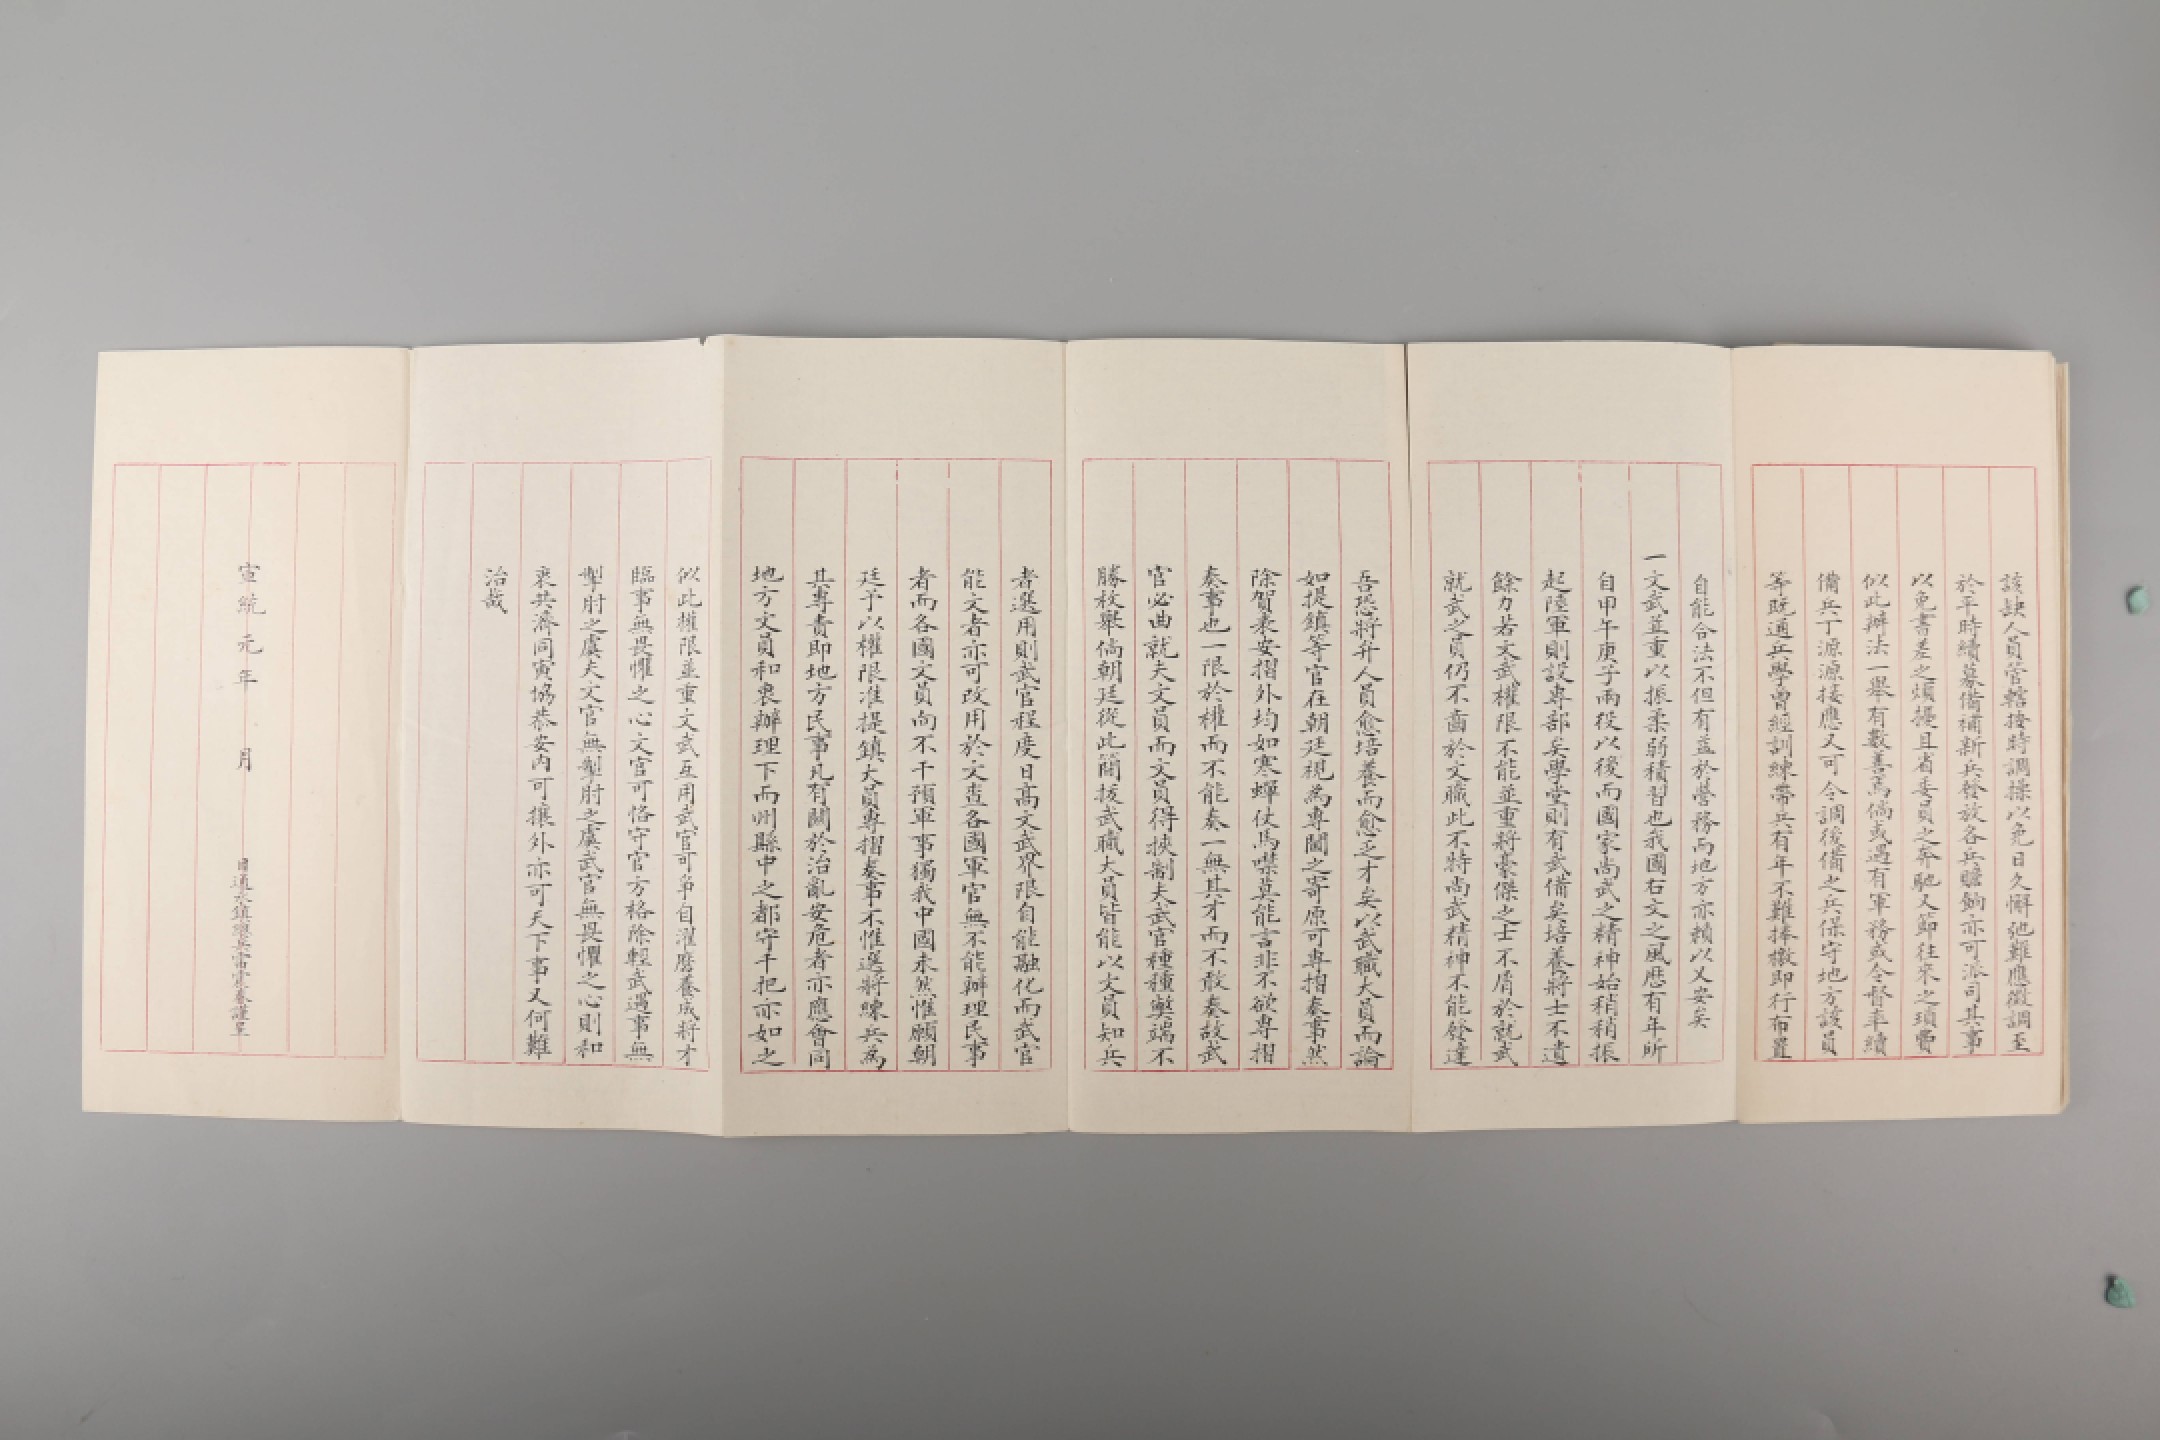 該缺人員管轄按時調操以免日久懈弛難應徵調至
於平時續募備補新兵發放各兵贍餉亦可派司其事
以免書差之煩擾且省委員之奔馳又節往來之瑣費
似此辦法一舉有數善焉倘或遇有軍務或令督率續
備兵丁源源接應又可令調後備之兵保守地方該員
等既通兵學曾經訓練帶兵有年不難捧檄即行布置
自能合法不但有益於營務而地方亦賴以乂安矣
一文武並重以振柔弱積習也我國右文之風歷有年所
自甲午庚子兩役以後而國家尚武之精神始稍稍振
起陸軍則設專部矣學堂則有武備矣培養將士不遺
餘力若文武權限不能並重將豪傑之士不屑於就武
就武之員仍不齒於文職此不特尚武精神不能發達
吾恐將弁人員愈培養而愈乏才矣以武職大員而論
如提鎮等官在朝廷視為專閫之寄原可專摺奏事然
除賀表安摺外均如寒蟬仗馬噤莫能言非不欲專摺
奏事也一限於權而不能奏一無其才而不敢奏故武
官必曲就夫文員而文員得挾制夫武官種種獘端不
勝枚舉倘朝廷從此簡拔武職大員皆能以文員知兵
者選用則武官程度日高文武界限自能融化而武官
能文者亦可改用於文查各國軍官無不能辦理民事
者而各國文員尚不干預軍事獨我中國未然惟願朝
廷予以權限准提鎮大員專摺奏事不惟選將練兵為
其專責即地方民事凡有關於治亂安危者亦應會同
地方文員和衷辦理下而州縣中之都守千把亦如之
似此權限並重文武互用武官可爭自濯磨養成將才
臨事無畏懼之心文官可恪守官方格除輕武遇事無
掣肘之虞夫文官無掣肘之虞武官無畏懼之心則和
衷共濟同寅協恭安內可攘外亦可天下事又何難
治哉
宣統元年 月 日通永鎮總兵雷震春謹呈